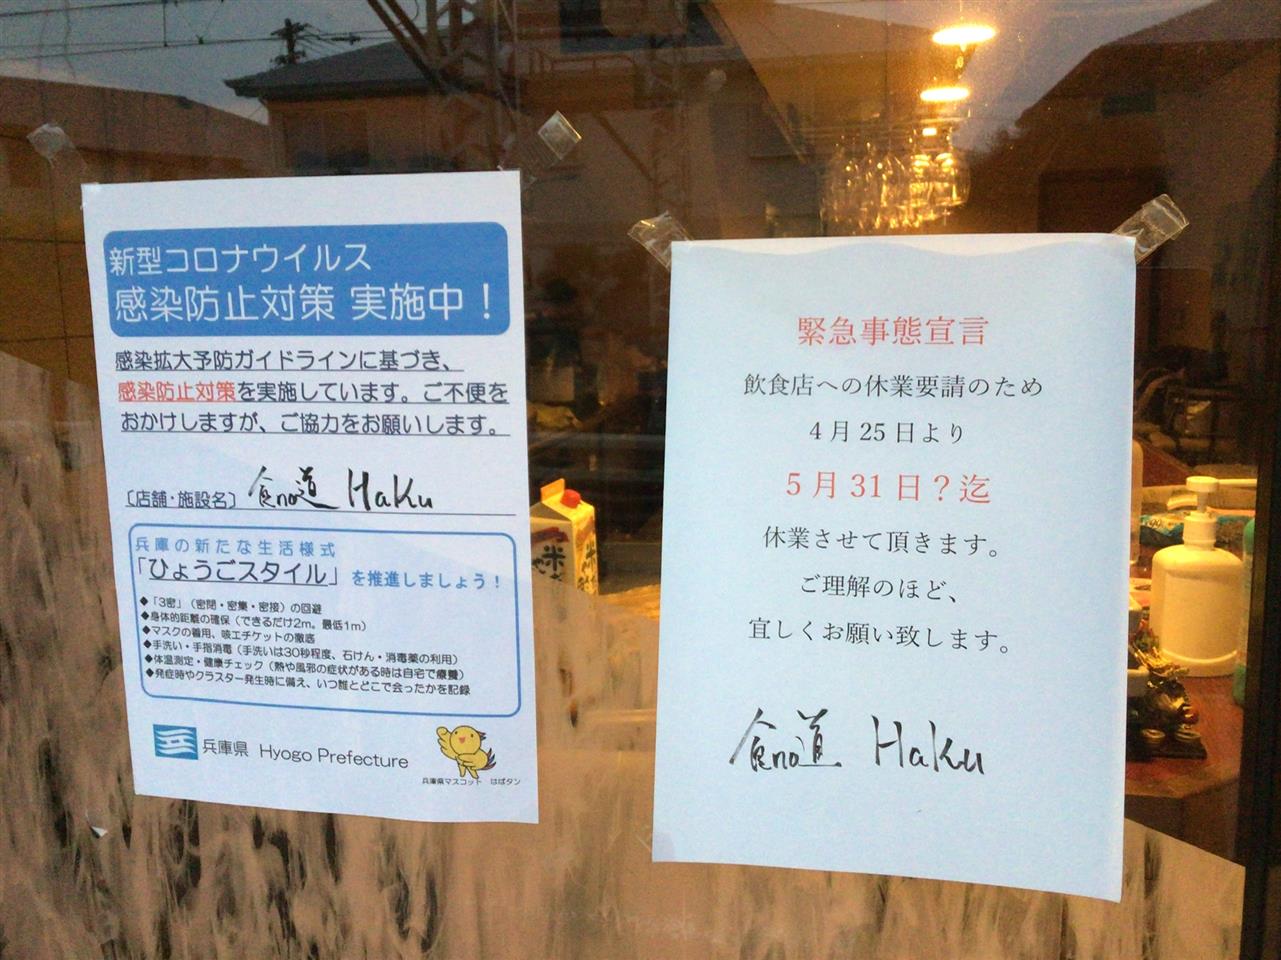 新型コロナウイルス
感染防止対策 実施中！
感染拡大予防ガイドラインに基づき、
感染防止対策を実施しています。ご不便を
おかけしますが、ご協力をお願いします。
〔店舗・施設名〕 食no道 HaKu
兵庫の新たな生活様式
「ひょうごスタイル」を推進しましょう！
◆「3密」（密閉・密集・密接）の回避
◆身体的距離の確保（できるだけ2m。最低1m）
◆マスクの着用、咳エチケットの徹底
◆手洗い・手指消毒（手洗いは30秒程度、石けん・消毒薬の利用）
◆体温測定・健康チェック（熱や風邪の症状がある時は自宅で療養）
◆発症時やクラスター発生時に備え、いつ誰とどこで会ったかを記録
兵庫県 Hyogo Prefecture
兵庫県マスコット はばタン
緊急事態宣言
飲食店への休業要請のため
4月25日より
5月31日？迄
休業させて頂きます。
ご理解のほど、
宜しくお願い致します。
食no道 HaKu
米